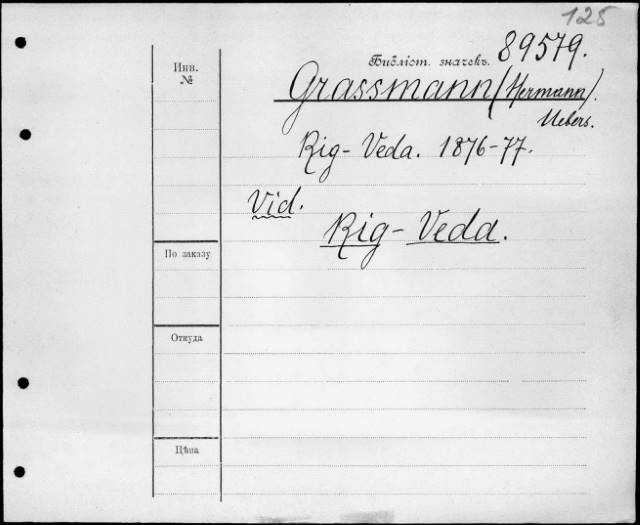 125
Библіот. значекъ. 89579.
Инв.
№
Grassmann (Hermann).
Uebers.
Rig-Veda. 1876-77.
Vid.
Rig-Veda.
По заказу
Откуда
Цѣна